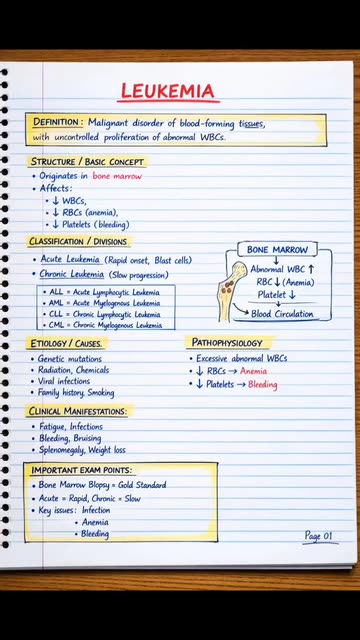 LEUKEMIA
DEFINITION: Malignant disorder of blood-forming tissues,
with uncontrolled proliferation of abnormal WBCs.
STRUCTURE / BASIC CONCEPT
• Originates in bone marrow
• Affects:
• ↓ WBCs,
• ↓ RBCs (anemia),
• ↓ Platelets (bleeding)
CLASSIFICATION / DIVISIONS
• Acute Leukemia (Rapid onset, Blast cells)
• Chronic Leukemia (Slow progression)
• ALL = Acute Lymphocytic Leukemia
• AML = Acute Myelogenous Leukemia
• CLL = Chronic Lymphocytic Leukemia
• CML = Chronic Myelogenous Leukemia
BONE MARROW
↓
Abnormal WBC ↑
RBC ↓ (Anemia)
Platelet ↓
↓
Blood Circulation
ETIOLOGY / CAUSES.
• Genetic mutations
• Radiation, Chemicals
• Viral infections
• Family history, Smoking
PATHOPHYSIOLOGY
• Excessive abnormal WBCs
• ↓ RBCs → Anemia
• ↓ Platelets → Bleeding
CLINICAL MANIFESTATIONS:
• Fatigue, Infections
• Bleeding, Bruising
• Splenomegaly, Weight loss
IMPORTANT EXAM POINTS:
• Bone Marrow Biopsy = Gold Standard
• Acute = Rapid, Chronic = Slow
• Key issues: Infection
• Anemia
• Bleeding
Page 01